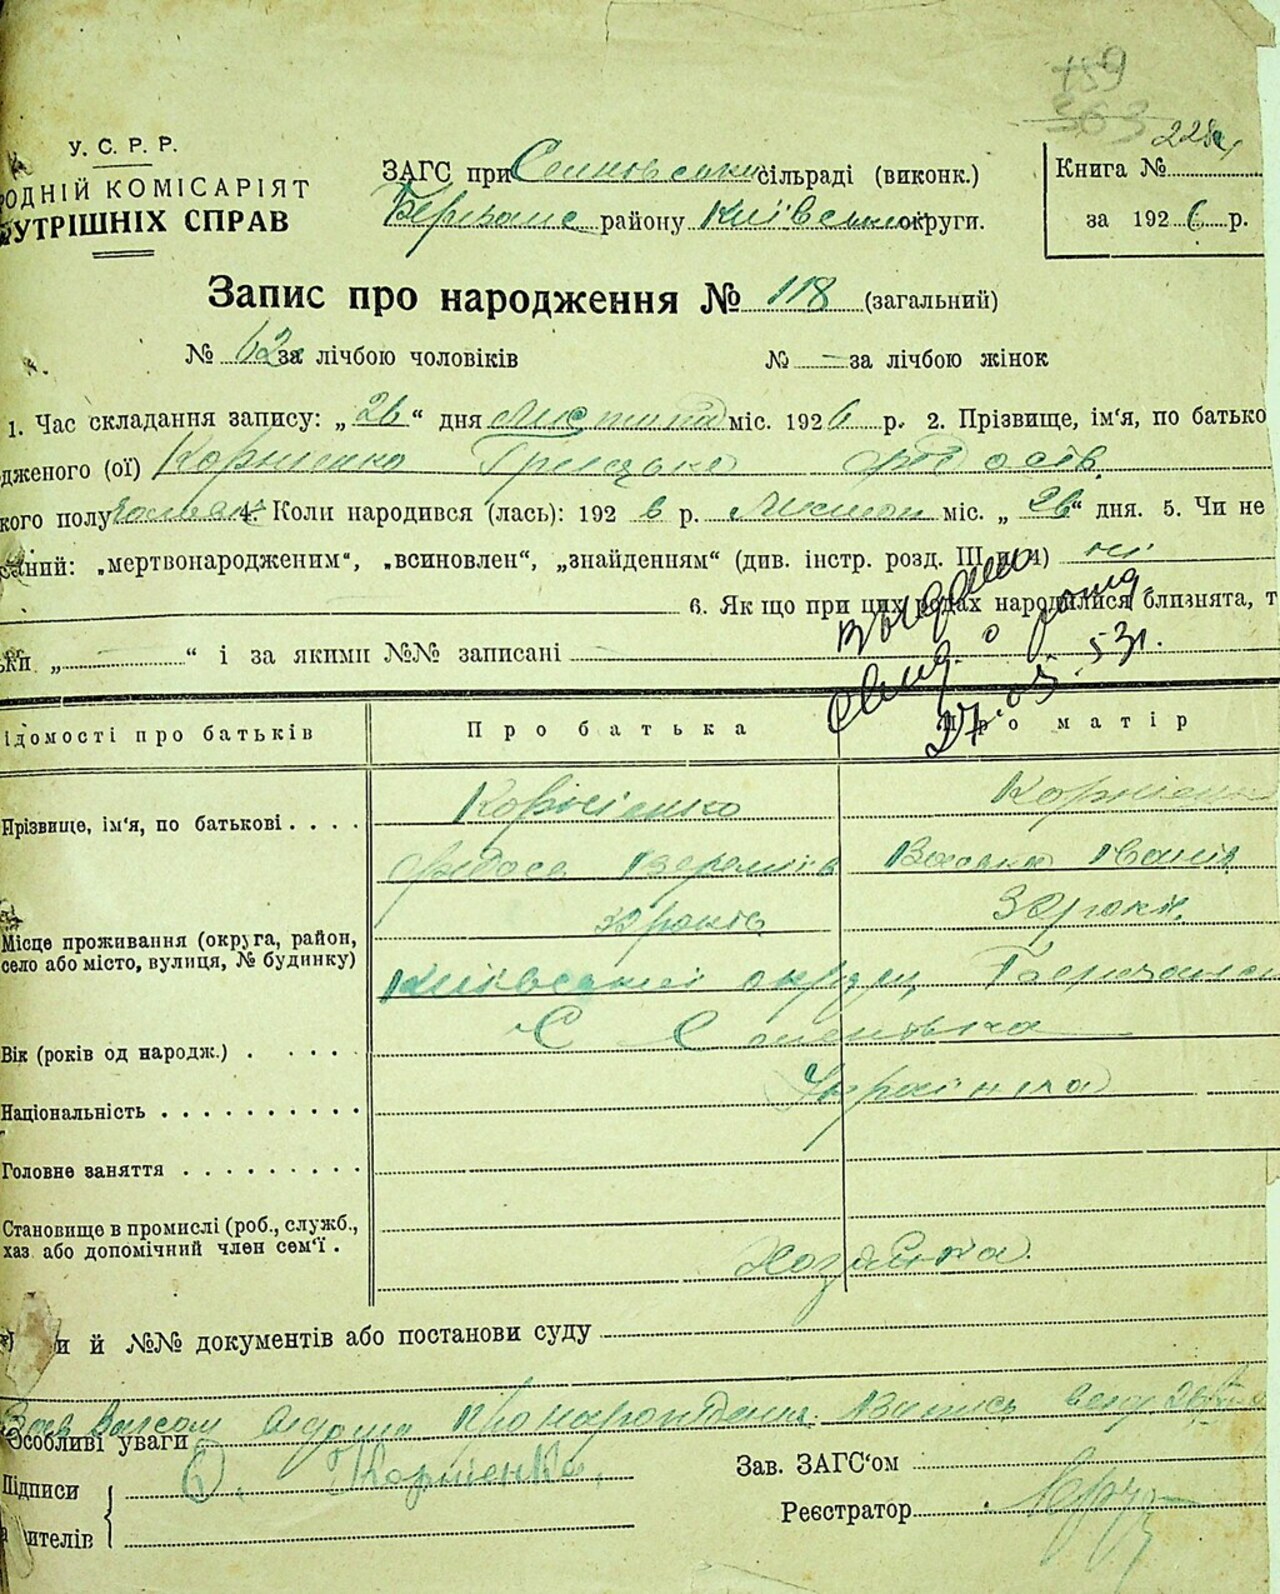 759
363
228
У. С. Р. Р.
РОДНІЙ КОМІСАРІЯТ
УТРІШНІХ СПРАВ
ЗАГС при сільраді (виконк.)
району Київської округи.
Книга №
за 1926 р.
Запис про народження № 118 (загальний)
№ 62 за лічбою чоловіків № — за лічбою жінок
1. Час складання запису: „26“ дня Листопад міс. 1926 р. 2. Прізвище, ім'я, по батько
дженого (ої) Корнієнко Грицько Федосів
кого полу 4. Коли народився (лась): 1926 р. Листоп міс. „26“ дня. 5. Чи не
аний: „мертвонародженим“, „всиновлен“, „знайденням“ (див. інстр. розд. III п. 4) ні
6. Як що при цих родах народилися близнята, т
ьки „ — “ і за якими №№ записані
27.03.53г.
ідомості про батьків Про батька Про матір
Прізвище, ім'я, по батькові . . . . Корнієнко Корнієнко
Федось Вереміїв Іванів
32 років 32 років
Місце проживання (округа, район,
село або місто, вулиця, № будинку)
Київської округи,
с
Вік (років од народж.) . . . . .
Національність . . . . . . . . . . Українка
Головне заняття . . . . . . . . .
Становище в промислі (роб., служб.,
хаз. або допомічний член сем'ї . Хозяйка.
и й №№ документів або постанови суду
про народження. Запись
Особливі уваги
Підписи Корнієнко
ителів
Зав. ЗАГС'ом
Реєстратор